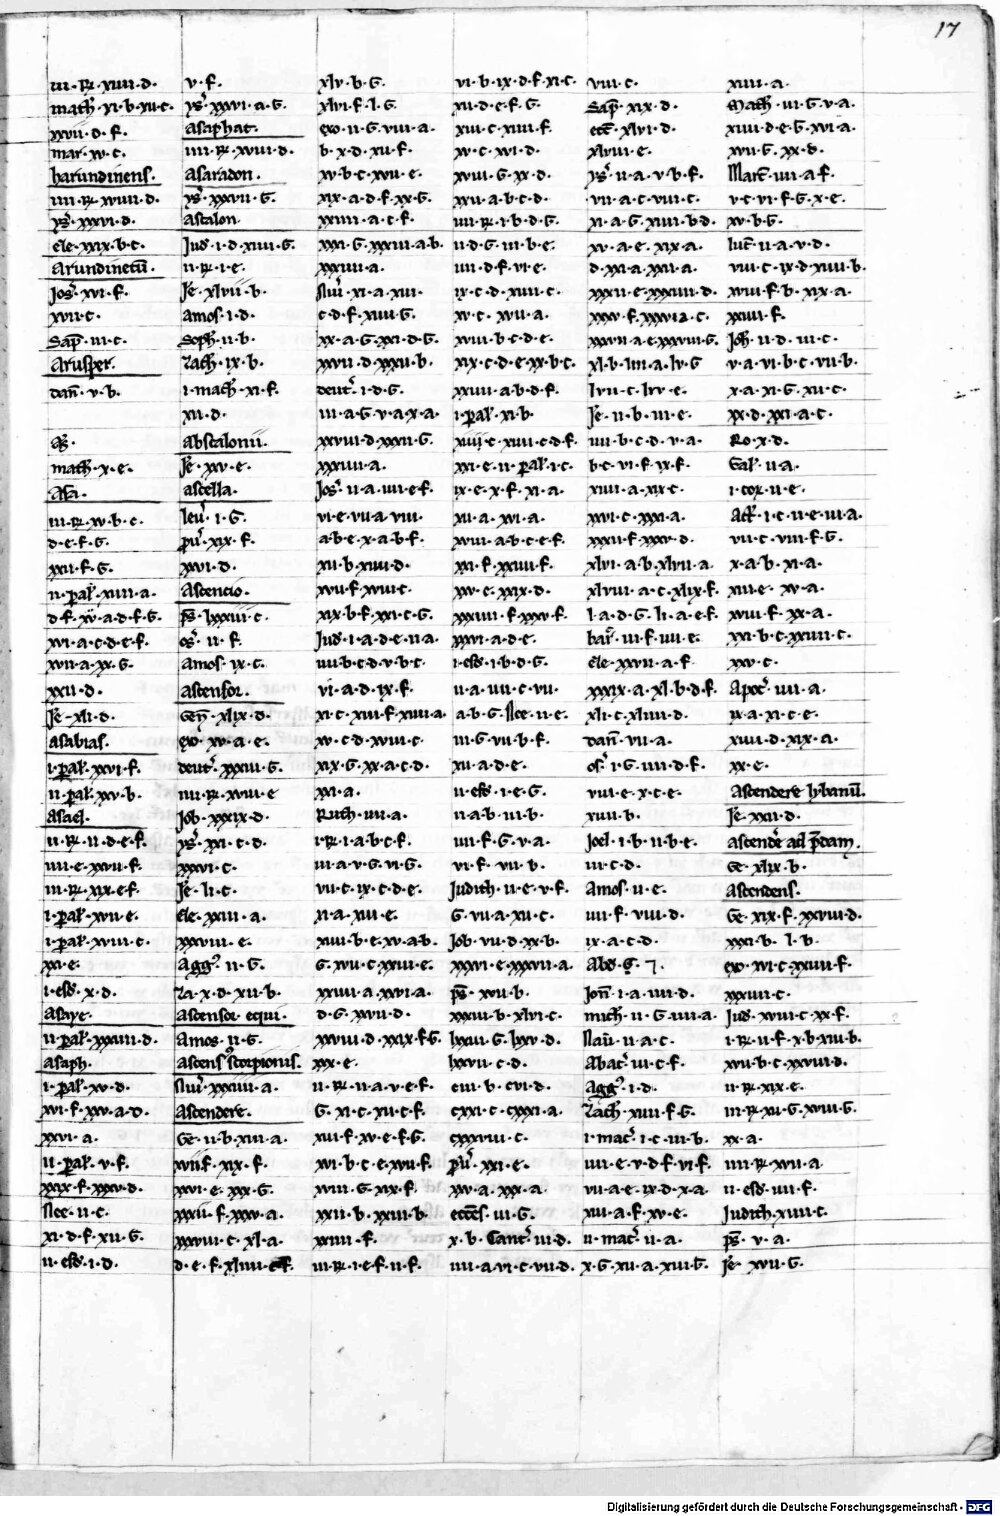 17
iii·R·xiiii·d·
math·xi·b·xii·c·
xxvii·d·f·
mar·xv·c·
harundinens·
iiii·R·xviii·d·
ys·xxxvi·d·
eze·xxix·b·c·
Arundinetū·
Jos·xvi·f·
xvii·c·
Sap·iii·c·
Arusper·
dañ·v·b·
math·x·e·
Asa·
iii·R·xv·b·c·
d·e·f·g·
xxii·f·g·
ii·pal·xiiii·a·
d·f·xv·a·d·f·g·
xvi·a·c·d·e·f·
xvii·a·xx·g·
xxii·d·
Je·xli·d·
asabias·
i·pal·xxvi·f·
ii·pal·xv·b·
Asael·
ii·R·ii·d·e·f·
iiii·e·xxvii·f·
iii·R·xix·e·f·
i·pal·xvii·e·
i·pal·xviii·c·
xxi·e·
i·esd·x·d·
Asaye·
ii·pal·xxxiiii·d·
asaph·
i·pal·xv·d·
xvi·f·xxv·a·d·
xxvi·a·
ii·pal·v·f·
xxix·f·xxxv·d·
Nee·ii·c·
xi·d·f·xii·g·
ii·esd·i·d·
v·f·
ys·xxxvi·a·g·
Asaphat·
iiii·R·xviii·d·
Asaradon·
ys·xxxvii·g·
ascalon
Jud·i·d·xiiii·g·
ii·R·i·e·
Je·xlvii·b·
amos·i·d·
Soph·ii·b·
Zach·ix·b·
i·mach·xi·f·
xii·d·
Abscalonii·
Je·xxv·e·
ascella·
leu·i·g·
pu·xix·f·
xxvi·d·
Ascencio·
ps·lxxxiii·c
os·ii·f·
Amos·ix·c·
Ascensor·
Gen·xlix·d·
exo·xv·a·e·
deut·xxxiii·g·
iiii·R·xviii·e
Job·xxxix·d·
ys·xxi·c·d·
xxxvi·c·
Je·li·c·
Eze·xxiii·a·
xxxviii·e·
Agg·ii·g·
Za·x·d·xii·b·
Ascensor equi·
Amos·ii·g·
Ascens scorpionis·
Nu·xxxiiii·a·
Ascendere·
Ge·ii·b·xiii·a·
xvii·f·xix·f·
xxvi·e·xxx·g·
xxxii·f·xxxv·a·
xxxviii·c·xl·a·
d·e·f·xliiii·e·f·
xlv·b·g·
xlvi·f·l·g·
exo·ii·g·viii·a·
b·x·d·xii·f·
xv·b·c·xvii·e·
xix·a·d·f·xx·g·
xxiiii·a·c·f·
xxxi·g·xxxiii·a·b·
xxxiiii·a·
Nu·xi·a·xiii·
c·d·f·xiiii·g·
xx·a·g·xxi·d·g·
xxvii·d·xxxii·b·
deut·i·d·g·
iii·a·g·v·a·x·a·
xxviii·d·xxxii·g·
xxxiiii·a·
Jos·ii·a·iiii·e·f·
vi·e·vii·a·viii·
a·b·e·x·a·b·f·
xii·b·xiiii·d·
xvii·f·xviii·c·
xix·b·f·xxi·c·g·
Jud·i·a·d·e·ii·a·
iiii·b·c·d·v·b·c·
vi·a·d·ix·f·
xi·c·xiii·f·xiiii·a·
xv·c·d·xviii·c·
xix·g·xx·a·c·d·
xxi·a·
Ruth·iiii·a·
i·R·i·a·b·c·f·
ii·a·v·g·vi·g·
vii·c·ix·c·d·e·
xi·a·xiii·e·
xiiii·b·e·xv·a·b·
g·xvii·c·xxiii·e·
xxiiii·a·xxvi·a·
d·g·xxvii·d·
xxviii·d·xxix·f·g·
xxx·e·
ii·R·ii·a·v·e·f·
g·xi·c·xii·c·f·
xiii·f·xv·e·f·g·
xvi·b·c·e·xvii·f·
xviii·g·xix·f·
xxii·b·xxiii·b·
xxiiii·f·
iii·R·i·e·f·ii·f·
vi·b·ix·d·f·xi·c·
xii·d·e·f·g·
xiii·c·xiiii·f·
xv·c·xvi·d·
xviii·g·xx·d·
xxii·a·b·c·d·
iiii·R·i·b·d·g·
ii·d·g·iii·b·e·
iiii·d·f·vi·e·
ix·c·d·xiiii·c·
xv·c·xvii·a·
xviii·b·c·d·e·
xix·c·d·e·xx·b·c·
xxiii·a·b·d·f·
i·pal·xi·b·
xiii·c·xiiii·c·d·f·
xxi·e·ii·pal·i·c·
ix·e·x·f·xi·a·
xii·a·xvi·a·
xviii·a·b·c·e·f·
xxi·f·xxiiii·f·
xxv·c·xxix·d·
xxxiiii·f·xxxv·f·
xxxvi·a·d·e·
i·esd·i·b·d·g·
ii·a·iiii·c·vii·
a·b·g·Nee·ii·e·
iii·g·vii·b·f·
xii·a·d·e·
ii·esd·i·e·g·
ii·a·b·iii·b·
iiii·f·g·v·a·
vi·f·vii·b·
Judith·ii·e·v·f·
g·vii·a·xii·c·
Job·vii·d·xx·b·
xxxvi·e·xxxvii·a·
ps·xvii·b·
xxxiii·b·xlvi·c·
lxxii·g·lxxv·d·
lxxvii·c·d·
ciii·b·cvi·d·
cxxi·c·cxxxi·a·
cxxxviii·c·
pu·xxi·e·
xxv·a·xxx·a·
eccēs·iii·g·
x·b·Cant·iii·d·
iiii·a·vi·c·vii·d·
viii·c·
Sap·xix·d·
ecc·xlvi·d·
xlviii·e·
ys·ii·a·v·b·f·
vii·a·c·viii·c·
xi·a·g·xiiii·b·d·
xv·a·e·xix·a·
d·xxi·a·xxii·a·
xxxii·e·xxxiiii·d·
xxxv·f·xxxvi·a·c·
xxxvii·a·e·xxxviii·g·
xl·b·liiii·a·lv·g
lvii·c·lxv·e·
Je·ii·b·iii·e·
iiii·b·c·d·v·a·
b·c·vi·f·ix·f·
xiiii·a·xix·c·
xxvi·c·xxxi·a·
xxxii·f·xxxv·d·
xlvi·a·b·xlvii·a·
xlviii·a·c·xlix·f·
l·a·d·g·li·a·e·f·
bar·iii·f·iiii·e·
Eze·xxvii·a·f·
xxxix·a·xl·b·d·f·
xli·c·xliiii·d·
Dañ·vii·a·
os·i·g·iiii·d·f·
viii·e·x·c·e·
xiii·b·
Joel·i·b·ii·b·e·
iii·c·d·
Amos·ii·e·
iiii·f·viii·d·
ix·a·c·d·
Abd·g·7·
Jon·i·a·iiii·d·
mich·ii·g·iiii·a·
Nau·ii·a·c·
Abac·iii·c·f·
Agg·i·d·
Zach·xiiii·f·g·
i·mac·i·c·iii·b·
iiii·e·v·d·f·vi·f·
vii·a·e·ix·d·x·a·
xiii·a·f·xv·e·
ii·mac·ii·a·
x·g·xii·a·xiii·g·
xiiii·a·
Math·iii·g·v·a·
xiiii·d·e·g·xvi·a·
xvii·g·xx·d·
Marc·iiii·a·f·
v·c·vi·f·g·x·e·
xv·b·g·
luc·ii·a·v·d·
viii·c·ix·d·xiiii·b·
xviii·f·b·xix·a·
xxiiii·f·
Joh·ii·d·iii·c·
v·a·vi·b·c·vii·b·
x·a·xi·g·xii·c·
xx·d·xxi·a·c·
Ro·x·d·
Gal·ii·a·
i·cor·ii·e·
Act·i·c·ii·e·iii·a·
vii·c·viii·f·g·
x·a·b·xi·a·
xiii·e·xv·a·
xviii·f·xx·a·
xxi·b·c·xxiiii·c·
xxv·c·
Apoc·iiii·a·
ix·a·xi·c·e·
xiiii·d·xix·a·
xx·e·
Ascendere lybanū·
Je·xxii·d·
ascendē ad p̄dam·
Ge·xlix·b·
Ascendens·
Ge·xix·f·xxviii·d·
xxxi·b·l·b·
exo·xvi·c·xxiiii·f·
xxxiiii·c·
Jud·xviii·c·xx·f·
i·R·ii·f·x·b·xiii·b·
xvii·b·c·xxviii·d·
ii·R·xix·e·
iii·R·xii·g·xviii·g·
xx·a·
iiii·R·xvii·a
ii·esd·iiii·f·
Judith·xiiii·c·
ps·v·a·
Je·xvii·g·
Digitalisierung gefördert durch die Deutsche Forschungsgemeinschaft - DFG